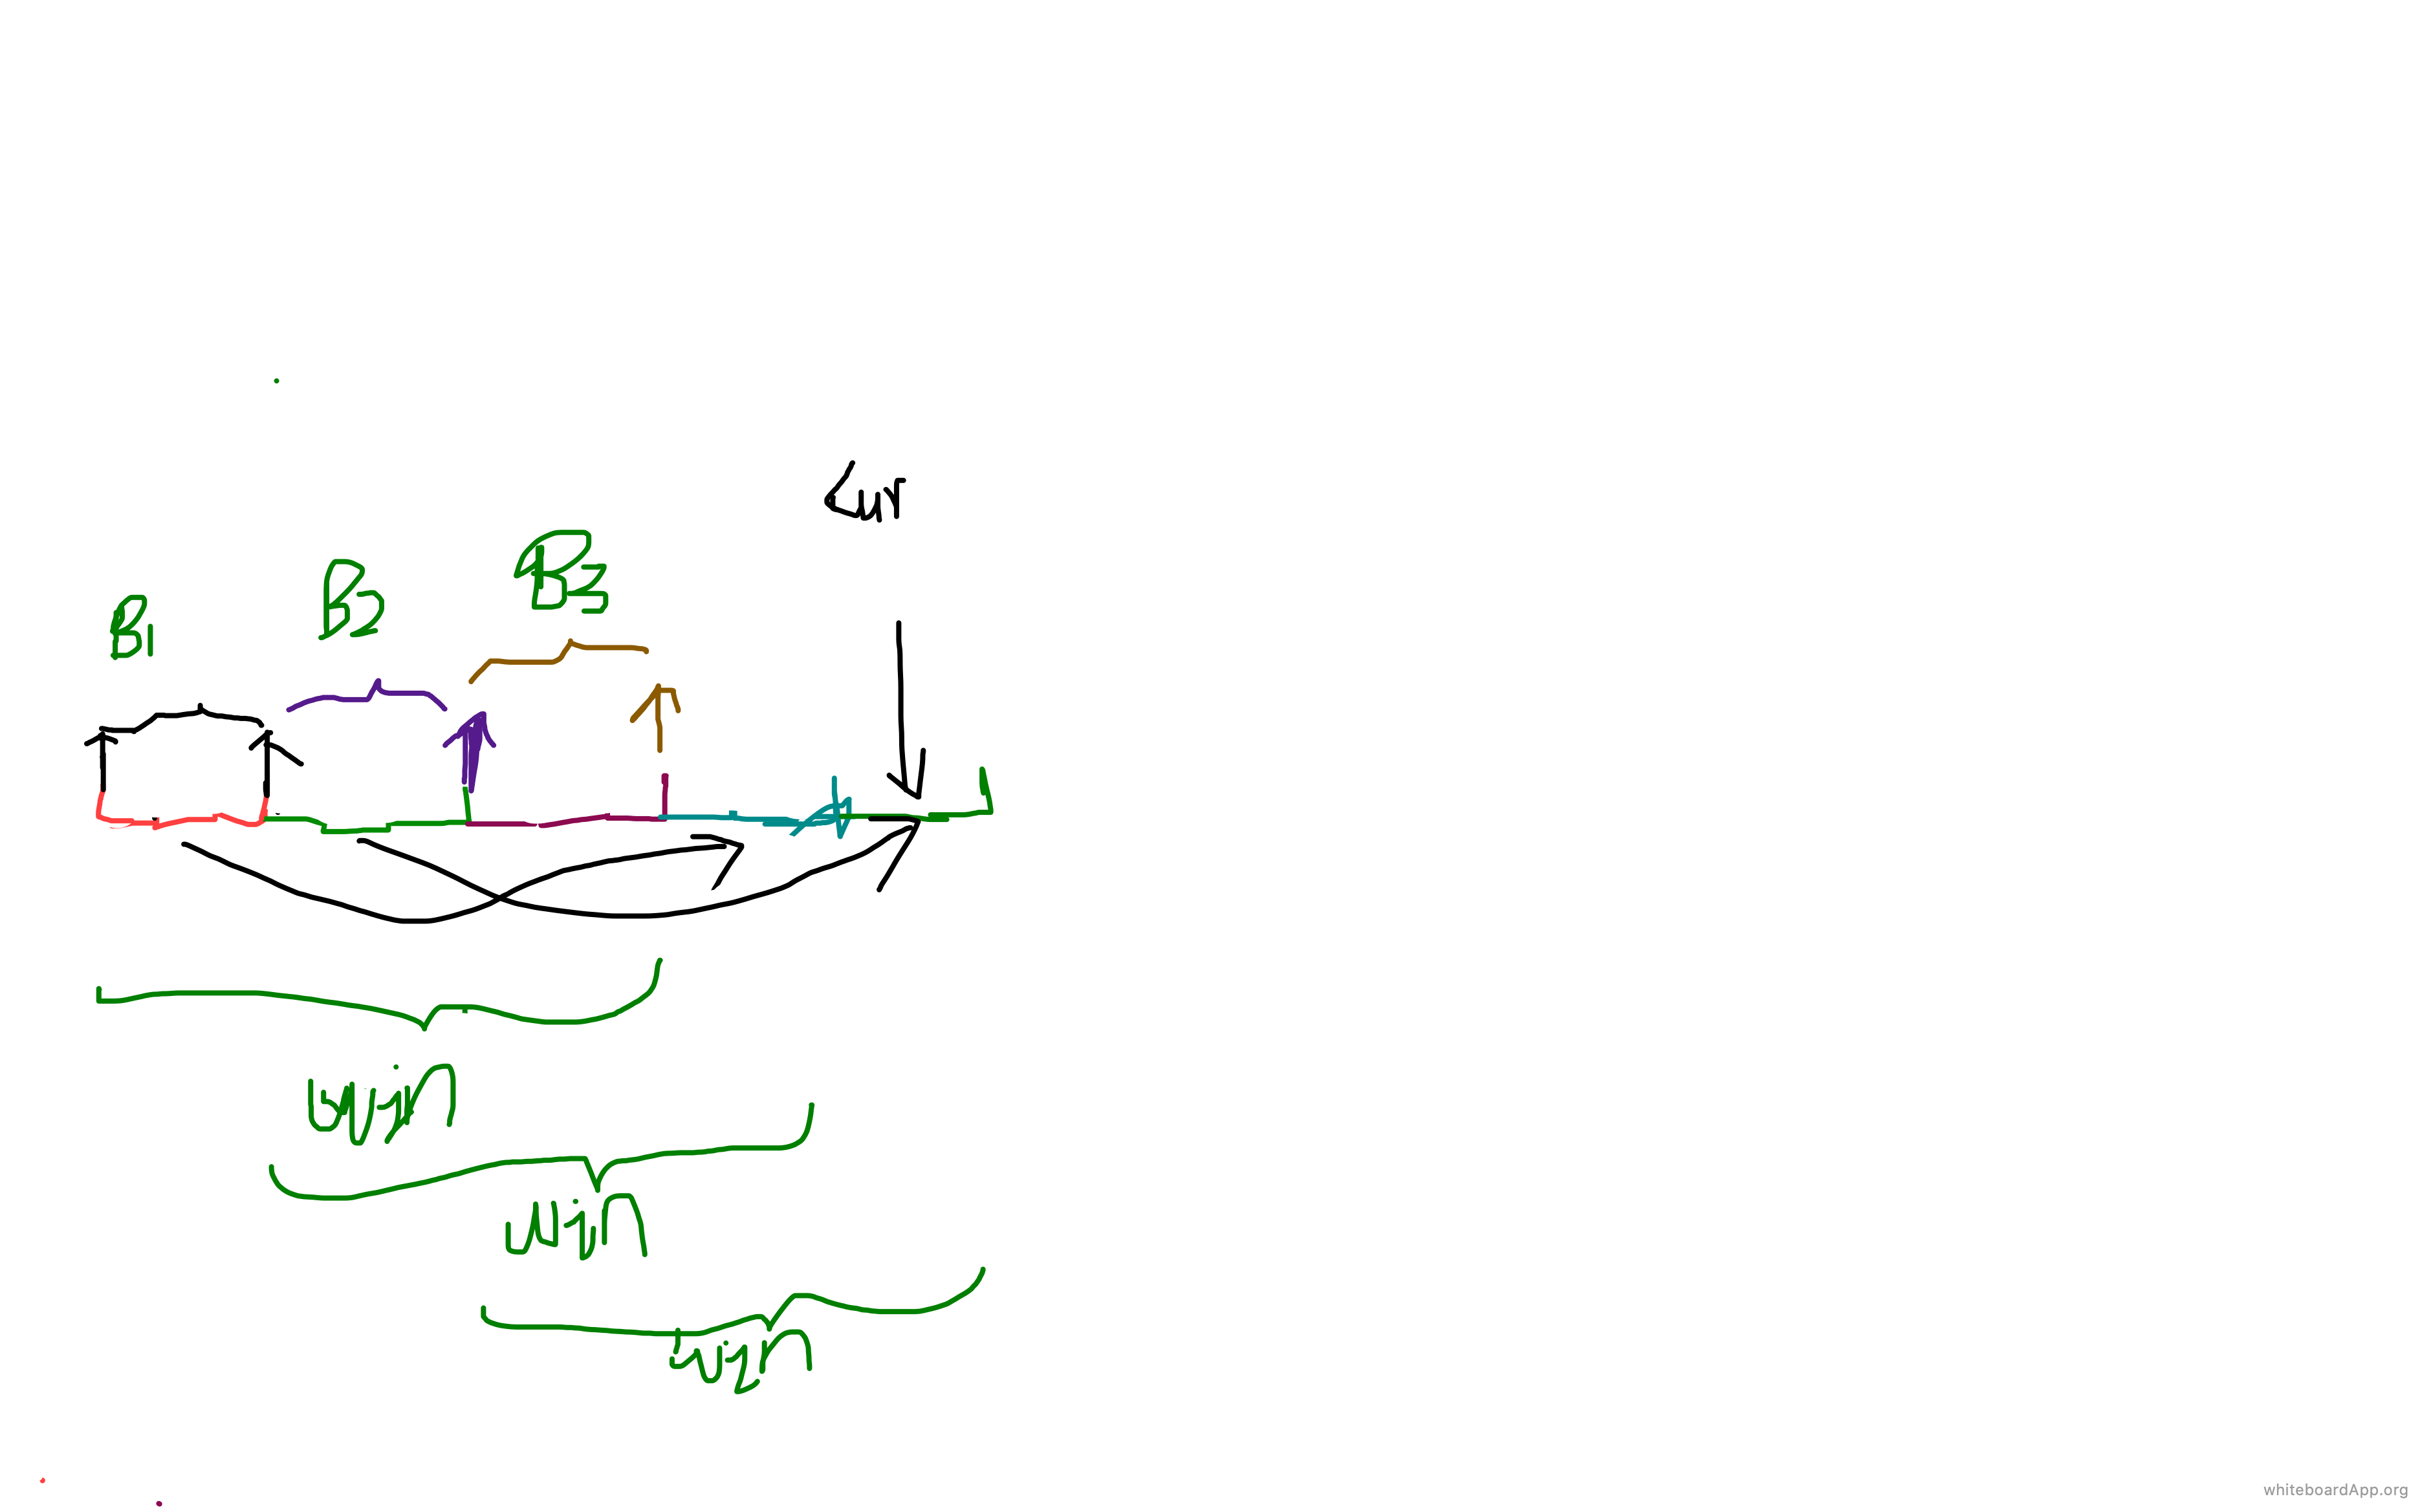 Cur
B1 B2 B3
win
win
win
whiteboardApp.org